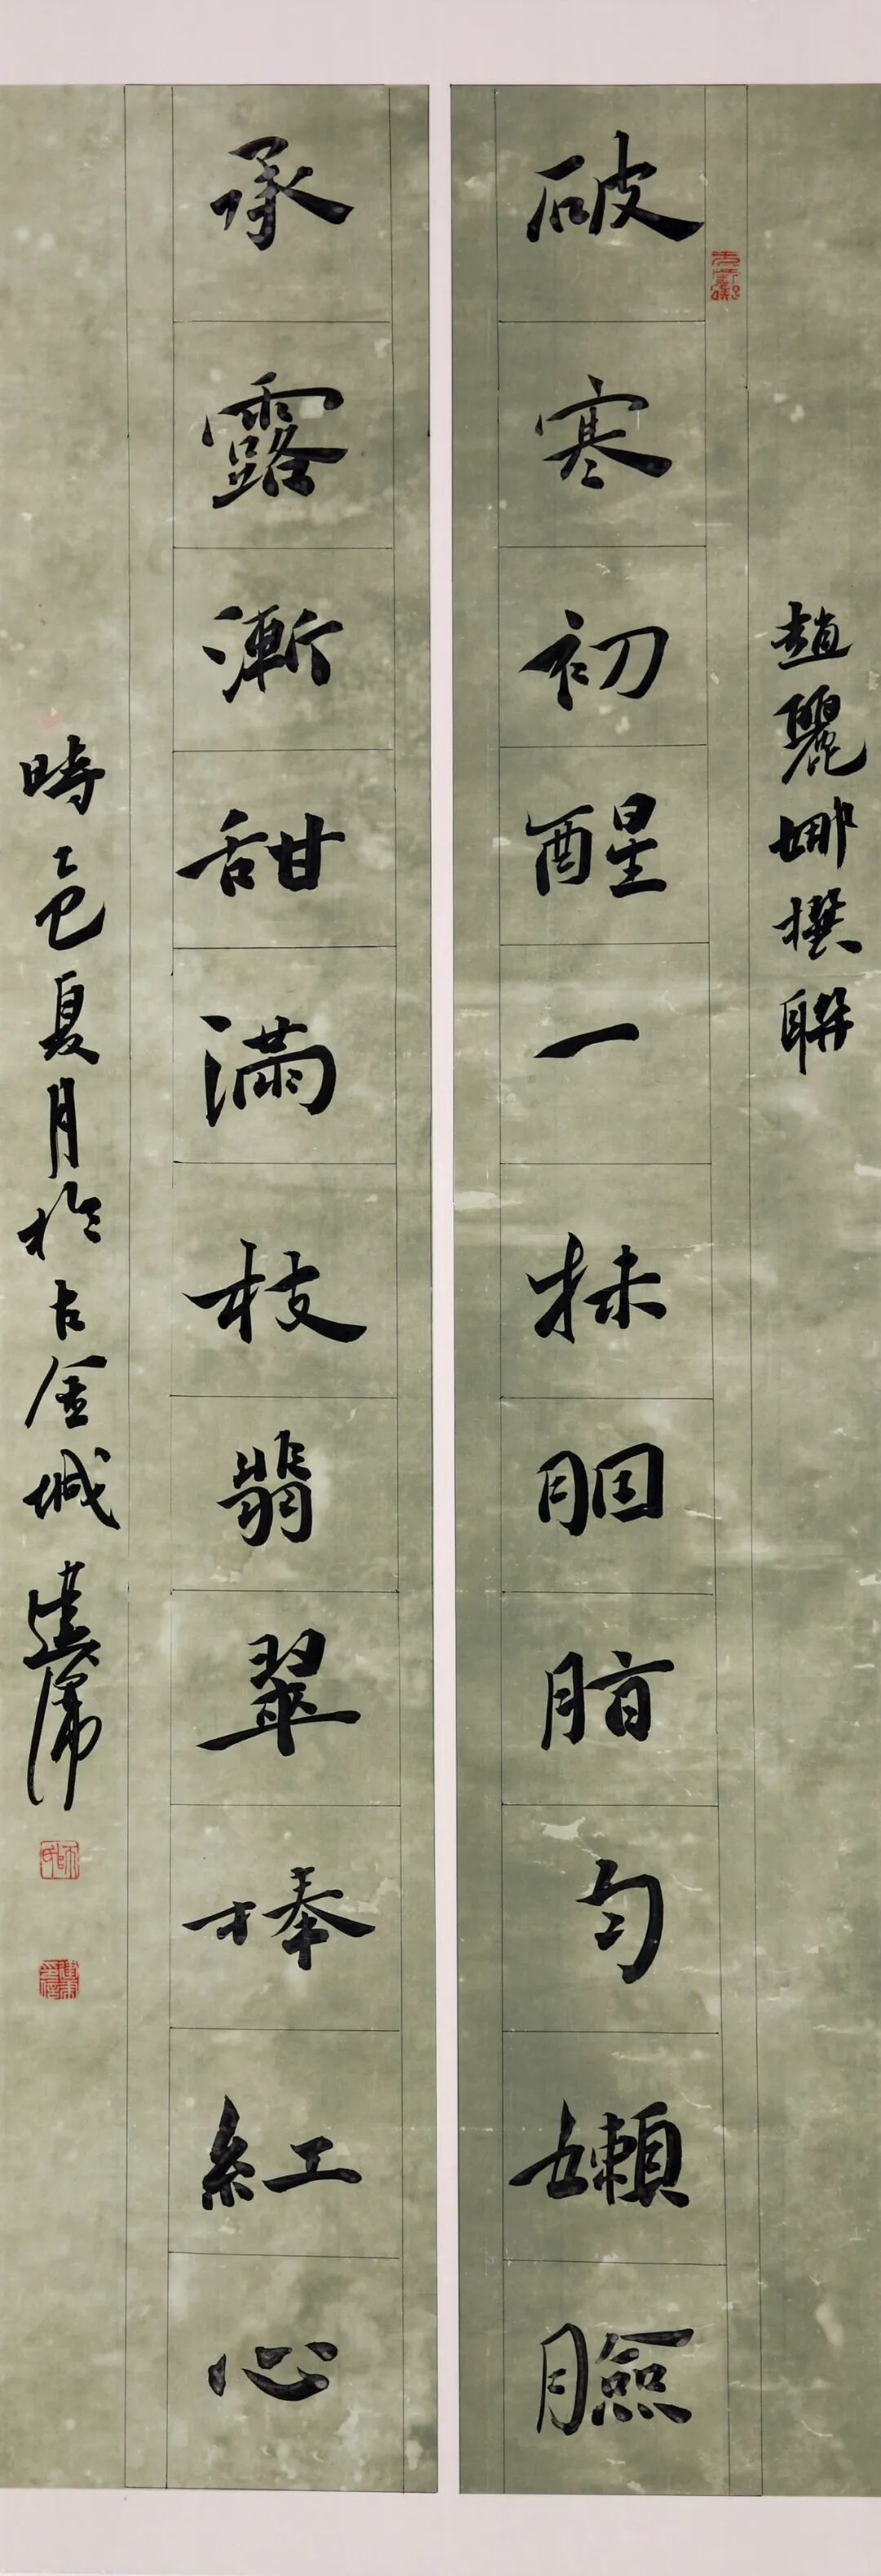 趙麗娜撰聯
破寒初醒一抹胭脂勻嬾臉
承露漸甜滿枝翡翠捧紅心
時乙巳夏月於古金城建霈